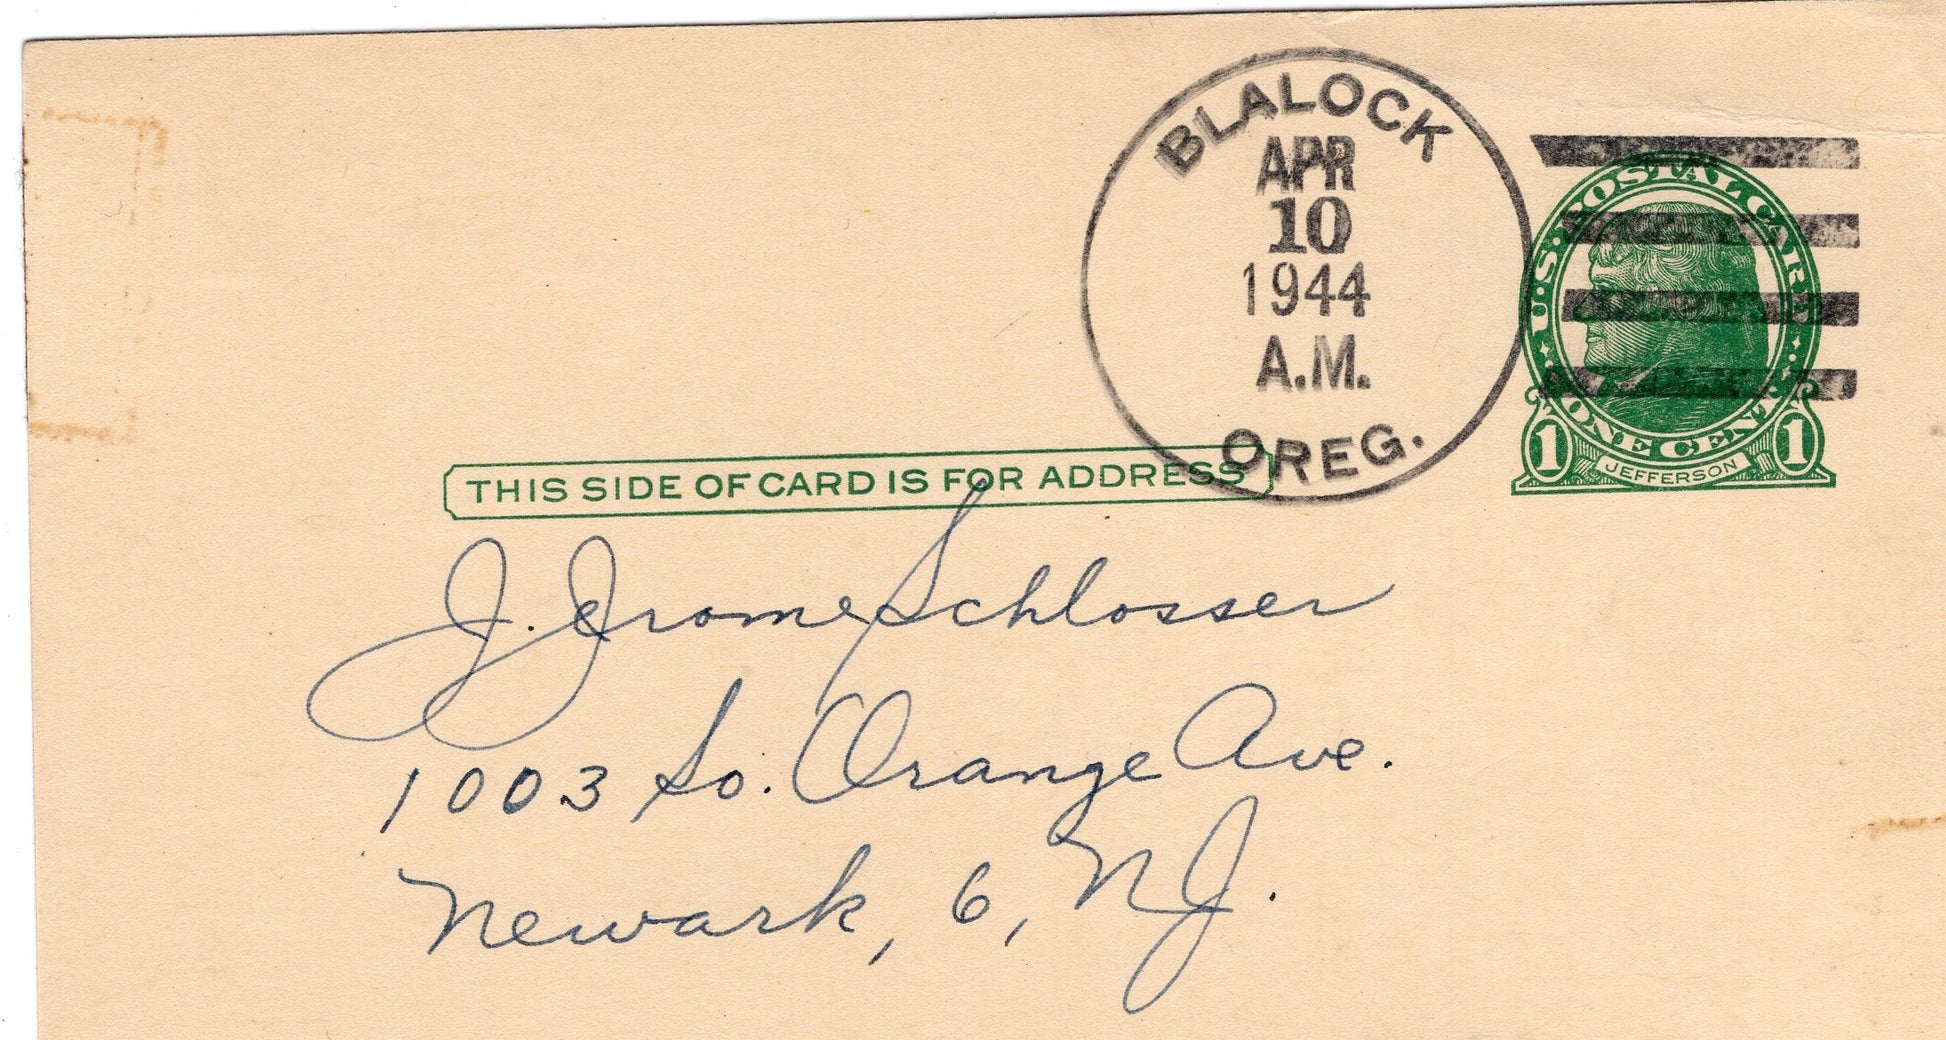 BLALOCK
APR
10
1944
A.M.
OREG.
U.S. POSTAL CARD
ONE CENT
1 JEFFERSON 1
THIS SIDE OF CARD IS FOR ADDRESS
J. Jrome Schlosser
1003 So. Orange Ave.
Newark, 6, N.J.